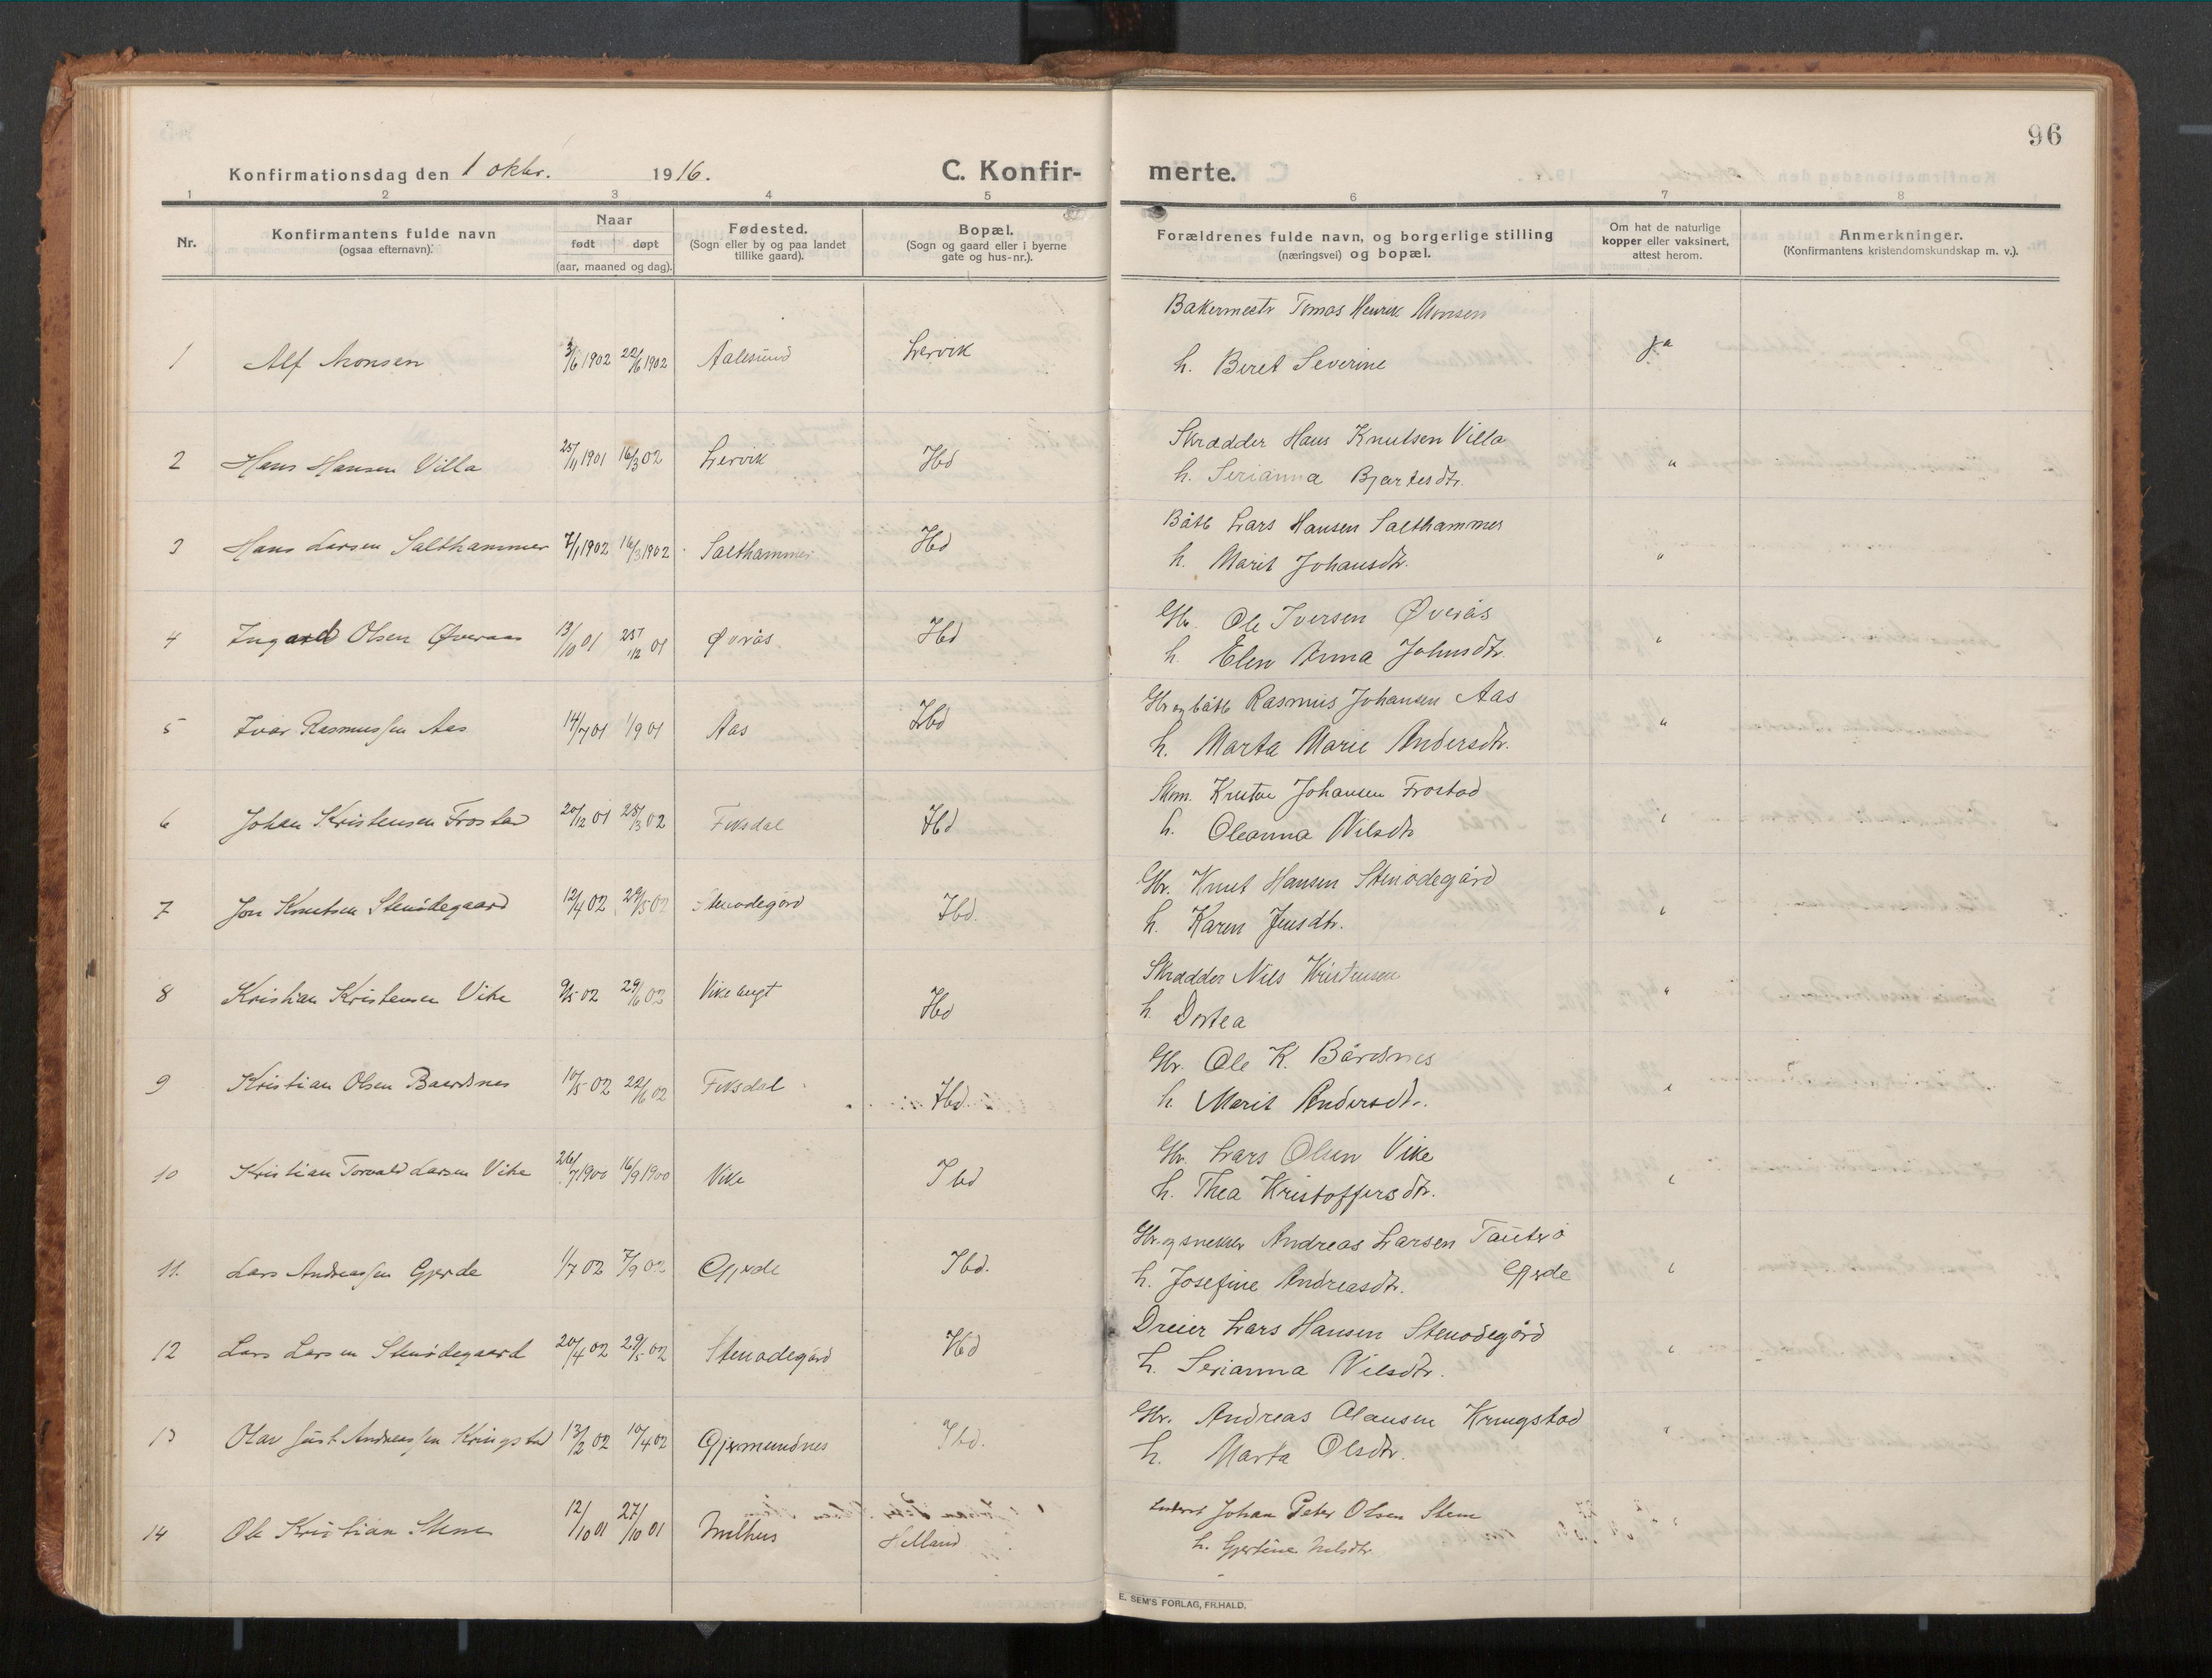 96
Konfirmationsdag den 1 oktbr. 1916.
C. Konfirmerte.
1 2 3 4 5 6 7 8
Nr.
Konfirmantens fulde navn
(ogsaa efternavn).
Naar
født døpt
(aar, maaned og dag).
Fødested.
(Sogn eller by og paa landet
tillike gaard).
Bopæl.
(Sogn og gaard eller i byerne
gate og hus-nr.).
Forældrenes fulde navn, og borgerlige stilling
(næringsvei) og bopæl.
Om hat de naturlige
kopper eller vaksinert,
attest herom.
Anmerkninger.
(Konfirmantens kristendomskundskap m. v.).
1 Alf Monsen 3/6 1902 22/6 1902 Aalesund Lervik
Bakermestr Tomas Henrik Monsen
h. Beret Severine
ja
2 Hans Hansen Villa 25/11 1901 16/3 02 Lervik Ibd
Skrædder Hans Knutsen Villa
h. Serianna Bjertesdtr. "
3 Hans Larsen Salthammer 7/1 1902 16/3 1902 Salthammer Ibd
Båtb Lars Hansen Salthammer
h. Marit Johansdtr. "
4 Ingard Olsen Øveraas 13/10 01 25/12 01 Øverås Ibd
Gbr. Ole Iversen Øverås
h. Elen Anna Johnsdtr. "
5 Ivar Rasmussen Aas 14/7 01 1/9 01 Aas Ibd
Gbr og båtb Rasmus Johansen Aas
h. Marta Marie Andersdtr. "
6 Johan Kristensen Frostad 20/12 01 28/3 02 Fiksdal Ibd
Kristen Johansen Frostad
h. Oleanna Nilsdtr "
7 Jon Knutsen Stenødegaard 12/4 02 29/5 02 Stenødegård Ibd.
Gbr. Knut Hansen Stenødegård
h. Karen Jensdtr. "
8 Kristian Kristensen Vike 9/5 02 29/6 02 Vikebugt Ibd
Skrædder Nils Kristensen
h. Dortea "
9 Kristian Olsen Baardsnes 10/5 02 22/6 02 Fiksdal Ibd
Gbr. Ole K. Bårdsnes
h. Marit Andersdtr. "
10 Kristian Torvald Larsen Vike 26/7 1900 16/9 1900 Vike Ibd
Gbr. Lars Olsen Vike
h. Thea Kristoffersdtr. "
11. Lars Andreassen Gjerde 1/7 02 7/9 02 Gjerde Ibd.
Gbr. og snekker Andreas Larsen Tauterø
h. Josefine Andreasdtr. Gjerde "
12 Lars Larsen Stenødegaard 20/4 02 29/5 02 Stenødegård Ibd
Dreier Lars Hansen Stenødegård
h. Serianna Nilsdtr. "
13 Olav Just Andreassen Kringstad 13/2 02 10/4 02 Gjermundnes Ibd.
Gbr. Andreas Olausen Kringstad
h. Marta Olsdtr. "
14 Ole Kristian Stene 12/10 01 27/10 01 Indhus Helland
Johan Peter Olsen Stene
h. Gjertine Nilsdtr.
E. SEM'S FORLAG, FR.HALD.